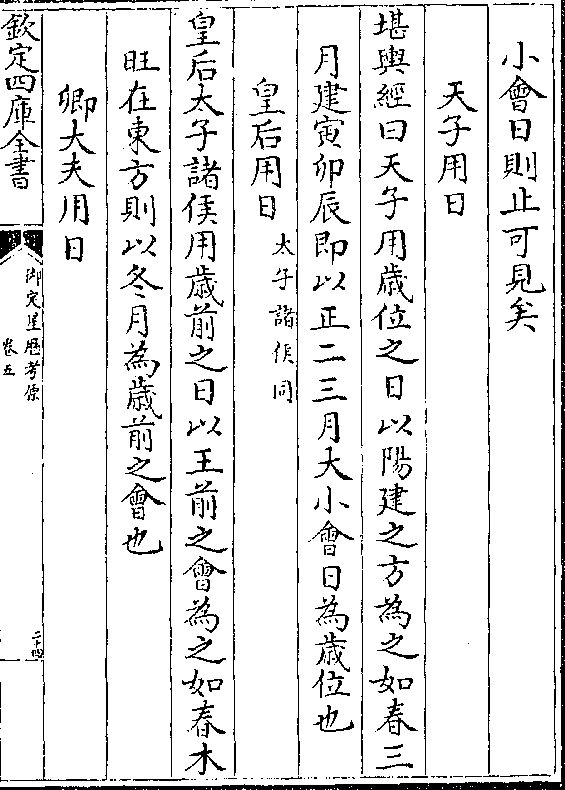 小會日則止可見矣
天子用日
堪輿經曰天子用歳位之日以陽建之方為之如春三
月建寅卯辰即以正二三月大小會日為歳位也
皇后用日太子諸侯同
皇后太子諸侯用歳前之日以王前之會為之如春木
旺在東方則以冬月為歳前之會也
卿大夫用日
欽定四庫全書
御定星厯考原
卷五
二十四